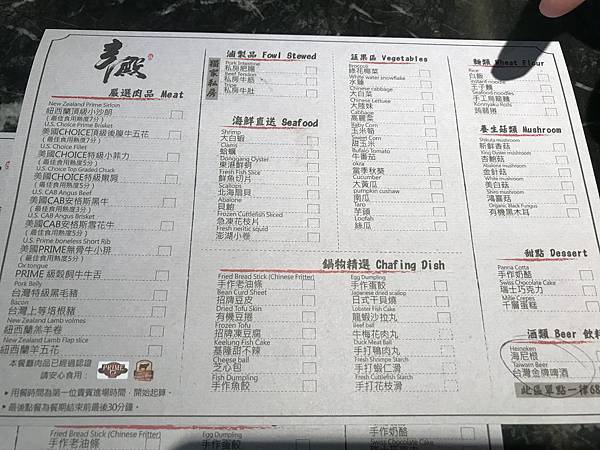 辛殿
嚴選肉品 Meat
New Zealand Prime Sirloin
紐西蘭頂級小沙朗
(最佳食用熟度7分)
U.S. Choice Prime Brisket
美國CHOICE頂級後腹牛五花
(最佳食用熟度7分)
U.S. Choice Fillet
美國CHOICE特級小菲力
(最佳食用熟度5分)
U.S. Choice Top Graded Chuck
美國CHOICE特級嫩肩
(最佳食用熟度5分)
U.S. CAB Angus Beef
美國CAB安格斯黑牛
(最佳食用熟度3分)
U.S. CAB Angus Brisket
美國CAB安格斯雪花牛
(最佳食用熟度5分)
U.S. Prime boneless Short Rib
美國PRIME無骨牛小排
(最佳食用熟度5分)
Ox tongue
PRIME 級穀飼牛牛舌
Pork Belly
台灣特級黑毛豬
Bacon
台灣上等培根豬
New Zealand Lamb volmens
紐西蘭羔羊卷
New Zealand Lamb Flap slice
紐西蘭羊五花
本餐廳肉品已經過認證
請安心食用:
PRIME
用餐時間為第一位貴賓進場時間,開始起算。
最後點餐為餐期結束前最後30分鐘。
滷製品 Fowl Stewed
獨家私房
Pork Intestine
私房肥腸
Beef Tendon
私房牛筋
私房牛肚
海鮮直送 Seafood
Shrimp
大白蝦
Clams
蛤蠣
Donggang Oyster
東港鮮蚵
Fresh Fish Slice
鮮魚切片
Scallops
北海扇貝
Abalone
貝鮑
Frozen Cuttlefish Sliced
急凍花枝片
Fresh neritic squid
澎湖小卷
蔬果區 Vegetables
Broccoli
綠花椰菜
White water snowflake
水蓮
Chinese cabbage
大白菜
Chinese Lettuce
大陸妹
Cabbage
高麗菜
Baby Corn
玉米筍
Sweet Corn
甜玉米
Bufalo Tomato
牛番茄
okra
當季秋葵
Cucumber
大黃瓜
pumpkin cushaw
南瓜
Taro
芋頭
Loofah
絲瓜
麵類 Wheat Flour
Rice
白飯
instant noodles
王子麵
Seafood noodles
手工烏龍麵
Konnyaku Rolls
蒟蒻捲
養生菇類 Mushroom
Shiitake mushroom
新鮮香菇
King Oyster mushroom
杏鮑菇
Abalone mushroom
金針菇
White mushroom
美白菇
Shiro mushroom
鴻喜菇
Organic Black Fungus
有機黑木耳
甜點 Dessert
Panna Cotta
手作奶酪
Swiss Chocolate Cake
瑞士巧克力
Mille Crepes
千層蛋糕
酒類 Beer 飲料
Heineken
海尼根
Taiwan Beer
台灣金牌啤酒
此區單點一樣68
鍋物精選 Chafing Dish
Fried Bread Stick (Chinese Fritter)
手作老油條
Bean Curd Sheet
招牌豆皮
Dried Tofu Skin
有機豆捲
Frozen Tofu
招牌凍豆腐
Keelung Fish Cake
基隆甜不辣
Cheese ball
芝心包
Fish Dumpling
手作魚餃
Egg Dumpling
手作蛋餃
Japanese dried scalop
日式干貝燒
Lobster Fish Cake
龍蝦沙拉丸
Beef ball
牛梅花肉丸
Duck Meat Ball
手打鴨肉丸
Fresh Shrimpe Starch
手打蝦仁滑
Fresh Cuttlefish Starch
手打花枝滑
Fried Bread Stick (Chinese Fritter)
手作老油條
Egg Dumpling
手作蛋餃
手作奶酪
Swiss Chocolate Cake